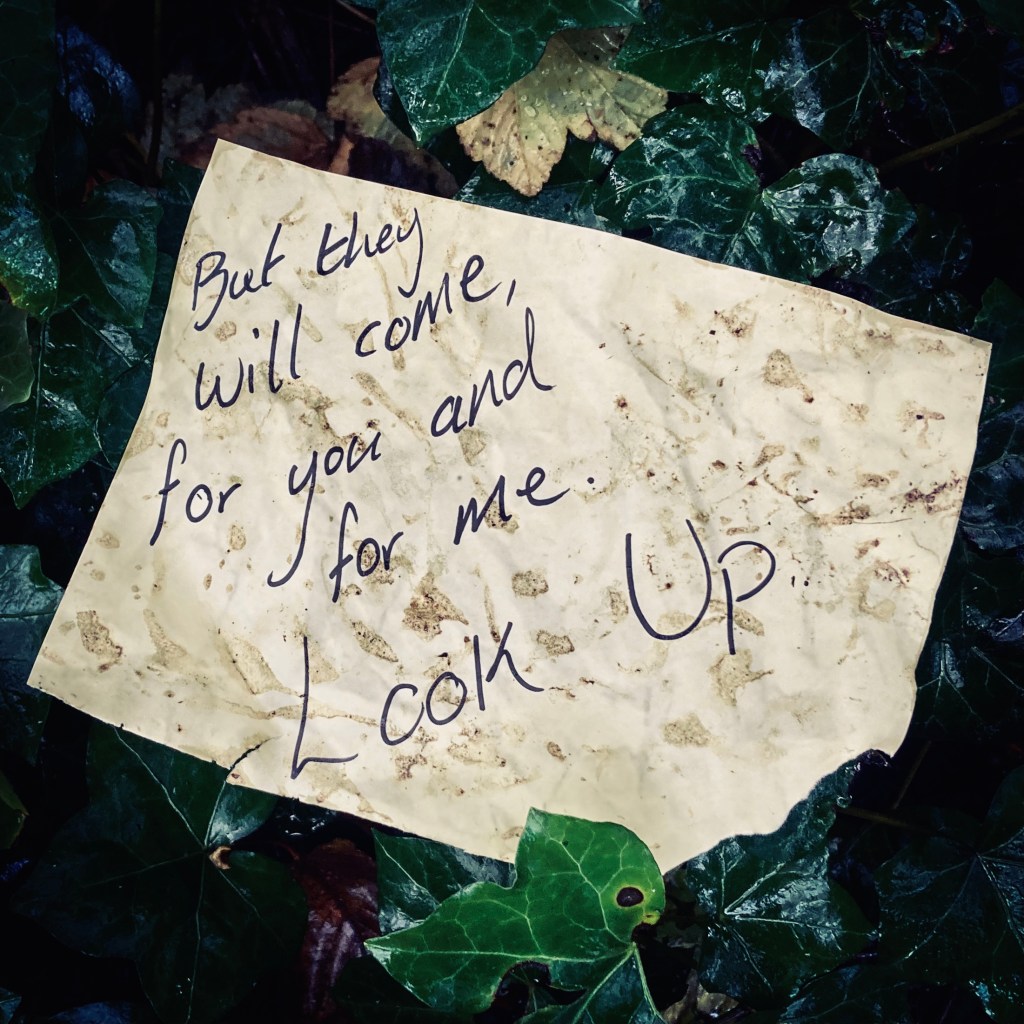 But they
will come,
for you and
for me.
Look Up.